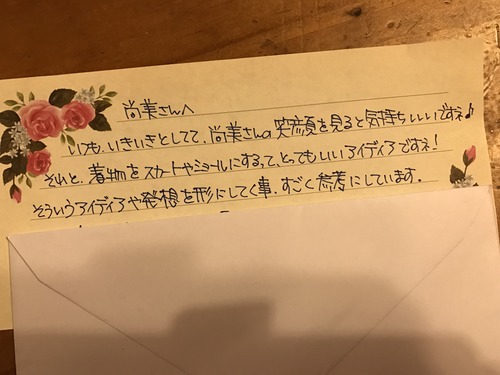 尚美さんへ
いつも、いきいきとしてて、尚美さんの笑顔を見ると気持ちいいですね♪
それと、着物をスカートやショールにするって、とってもいいアイディアですネ!
そういうアイディアや発想を形にしてく事、すごく参考にしています。